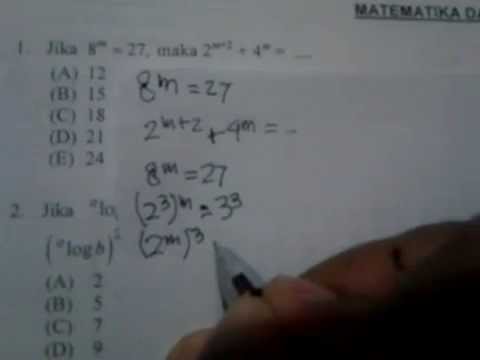 MATEMATIKA DA
1. Jika 8^m = 27, maka 2^{m+2} + 4^m = ....
(A) 12
(B) 15
(C) 18
(D) 21
(E) 24
8^m = 27
2^{m+2} + 4^m = -
8^m = 27
(2^3)^m = 3^3
(2^m)^3
2. Jika ^a lo
(^a log b)
(A) 2
(B) 5
(C) 7
(D) 9